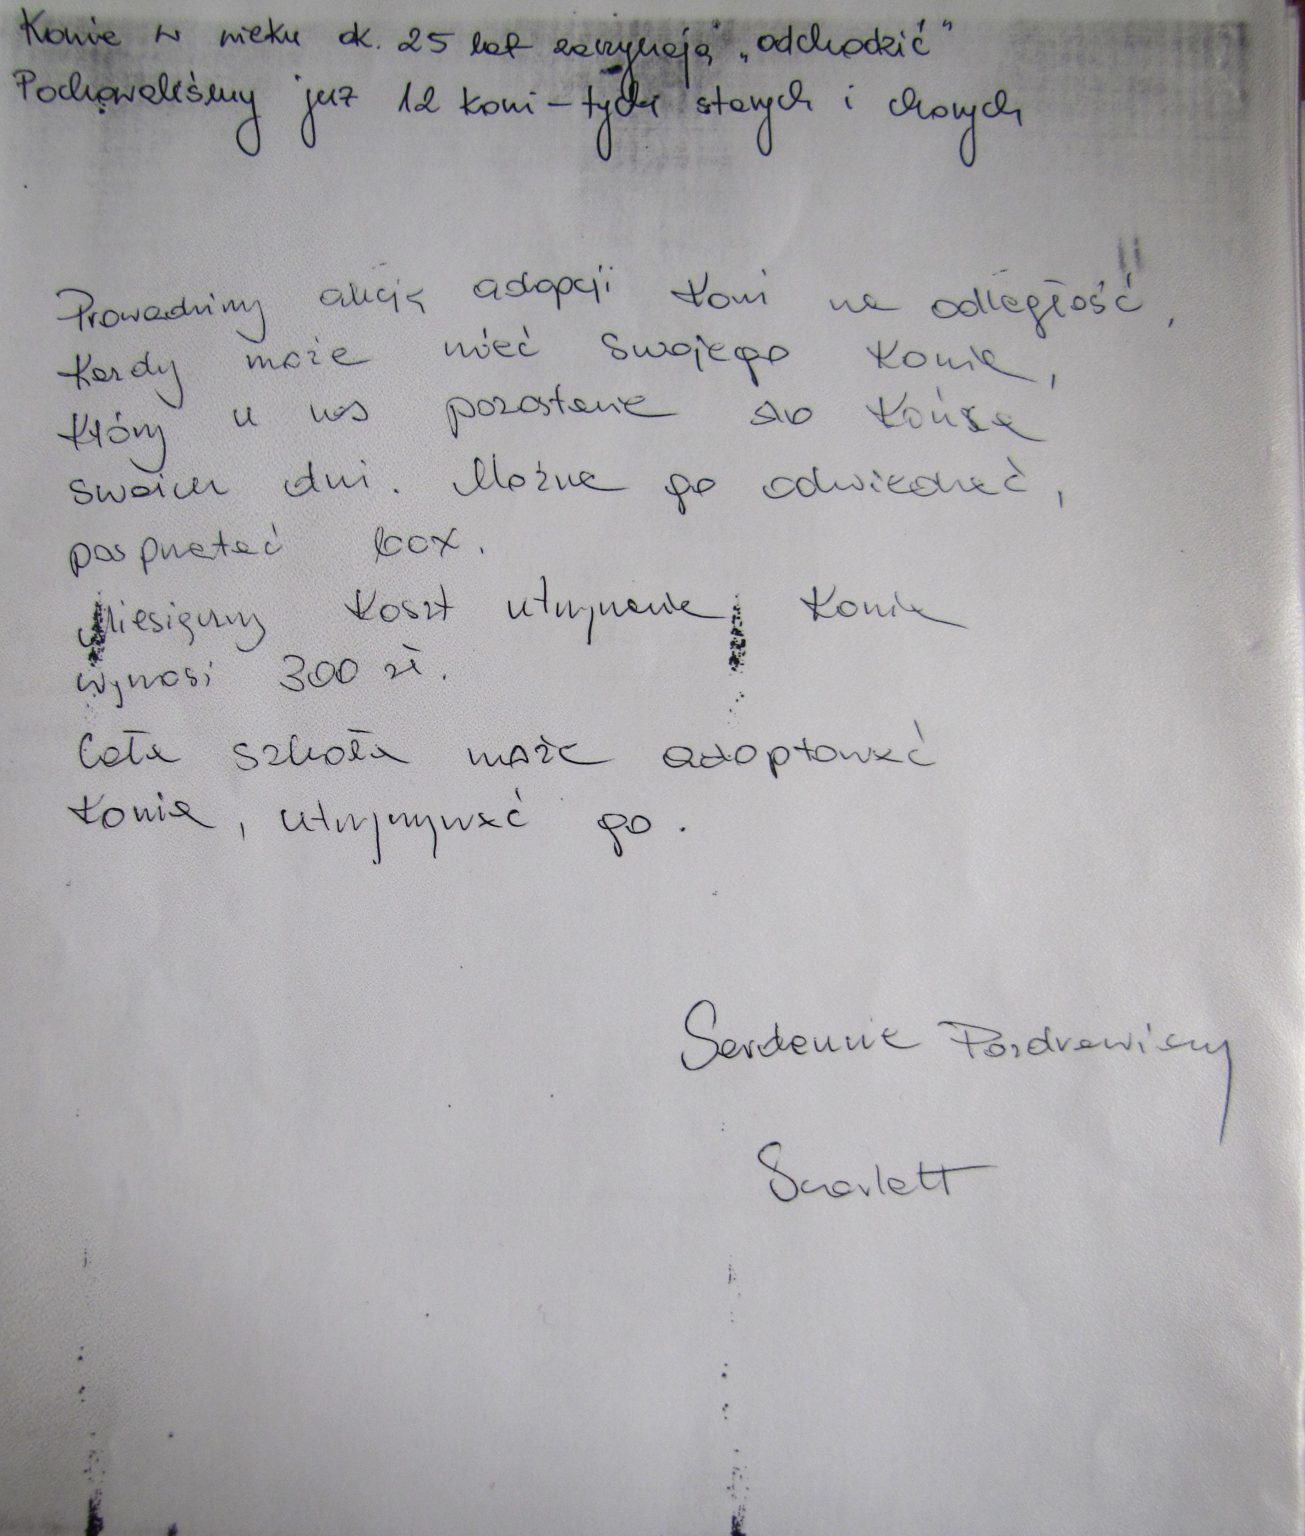 Konie w wieku ok. 25 lat zaczynają „odchodzić"
Pochowaliśmy już 12 koni – tych starych i chorych
Prowadzimy akcję adopcji koni na odległość,
Każdy może mieć swojego konia,
który u nas pozostanie do końca
swoich dni. Można go odwiedzać,
posprzątać box.
Miesięczny koszt utrzymania konia
wynosi 300 zł.
Cała szkoła może adoptować
konia, utrzymywać go.
Serdecznie Pozdrawiamy
Scarlett